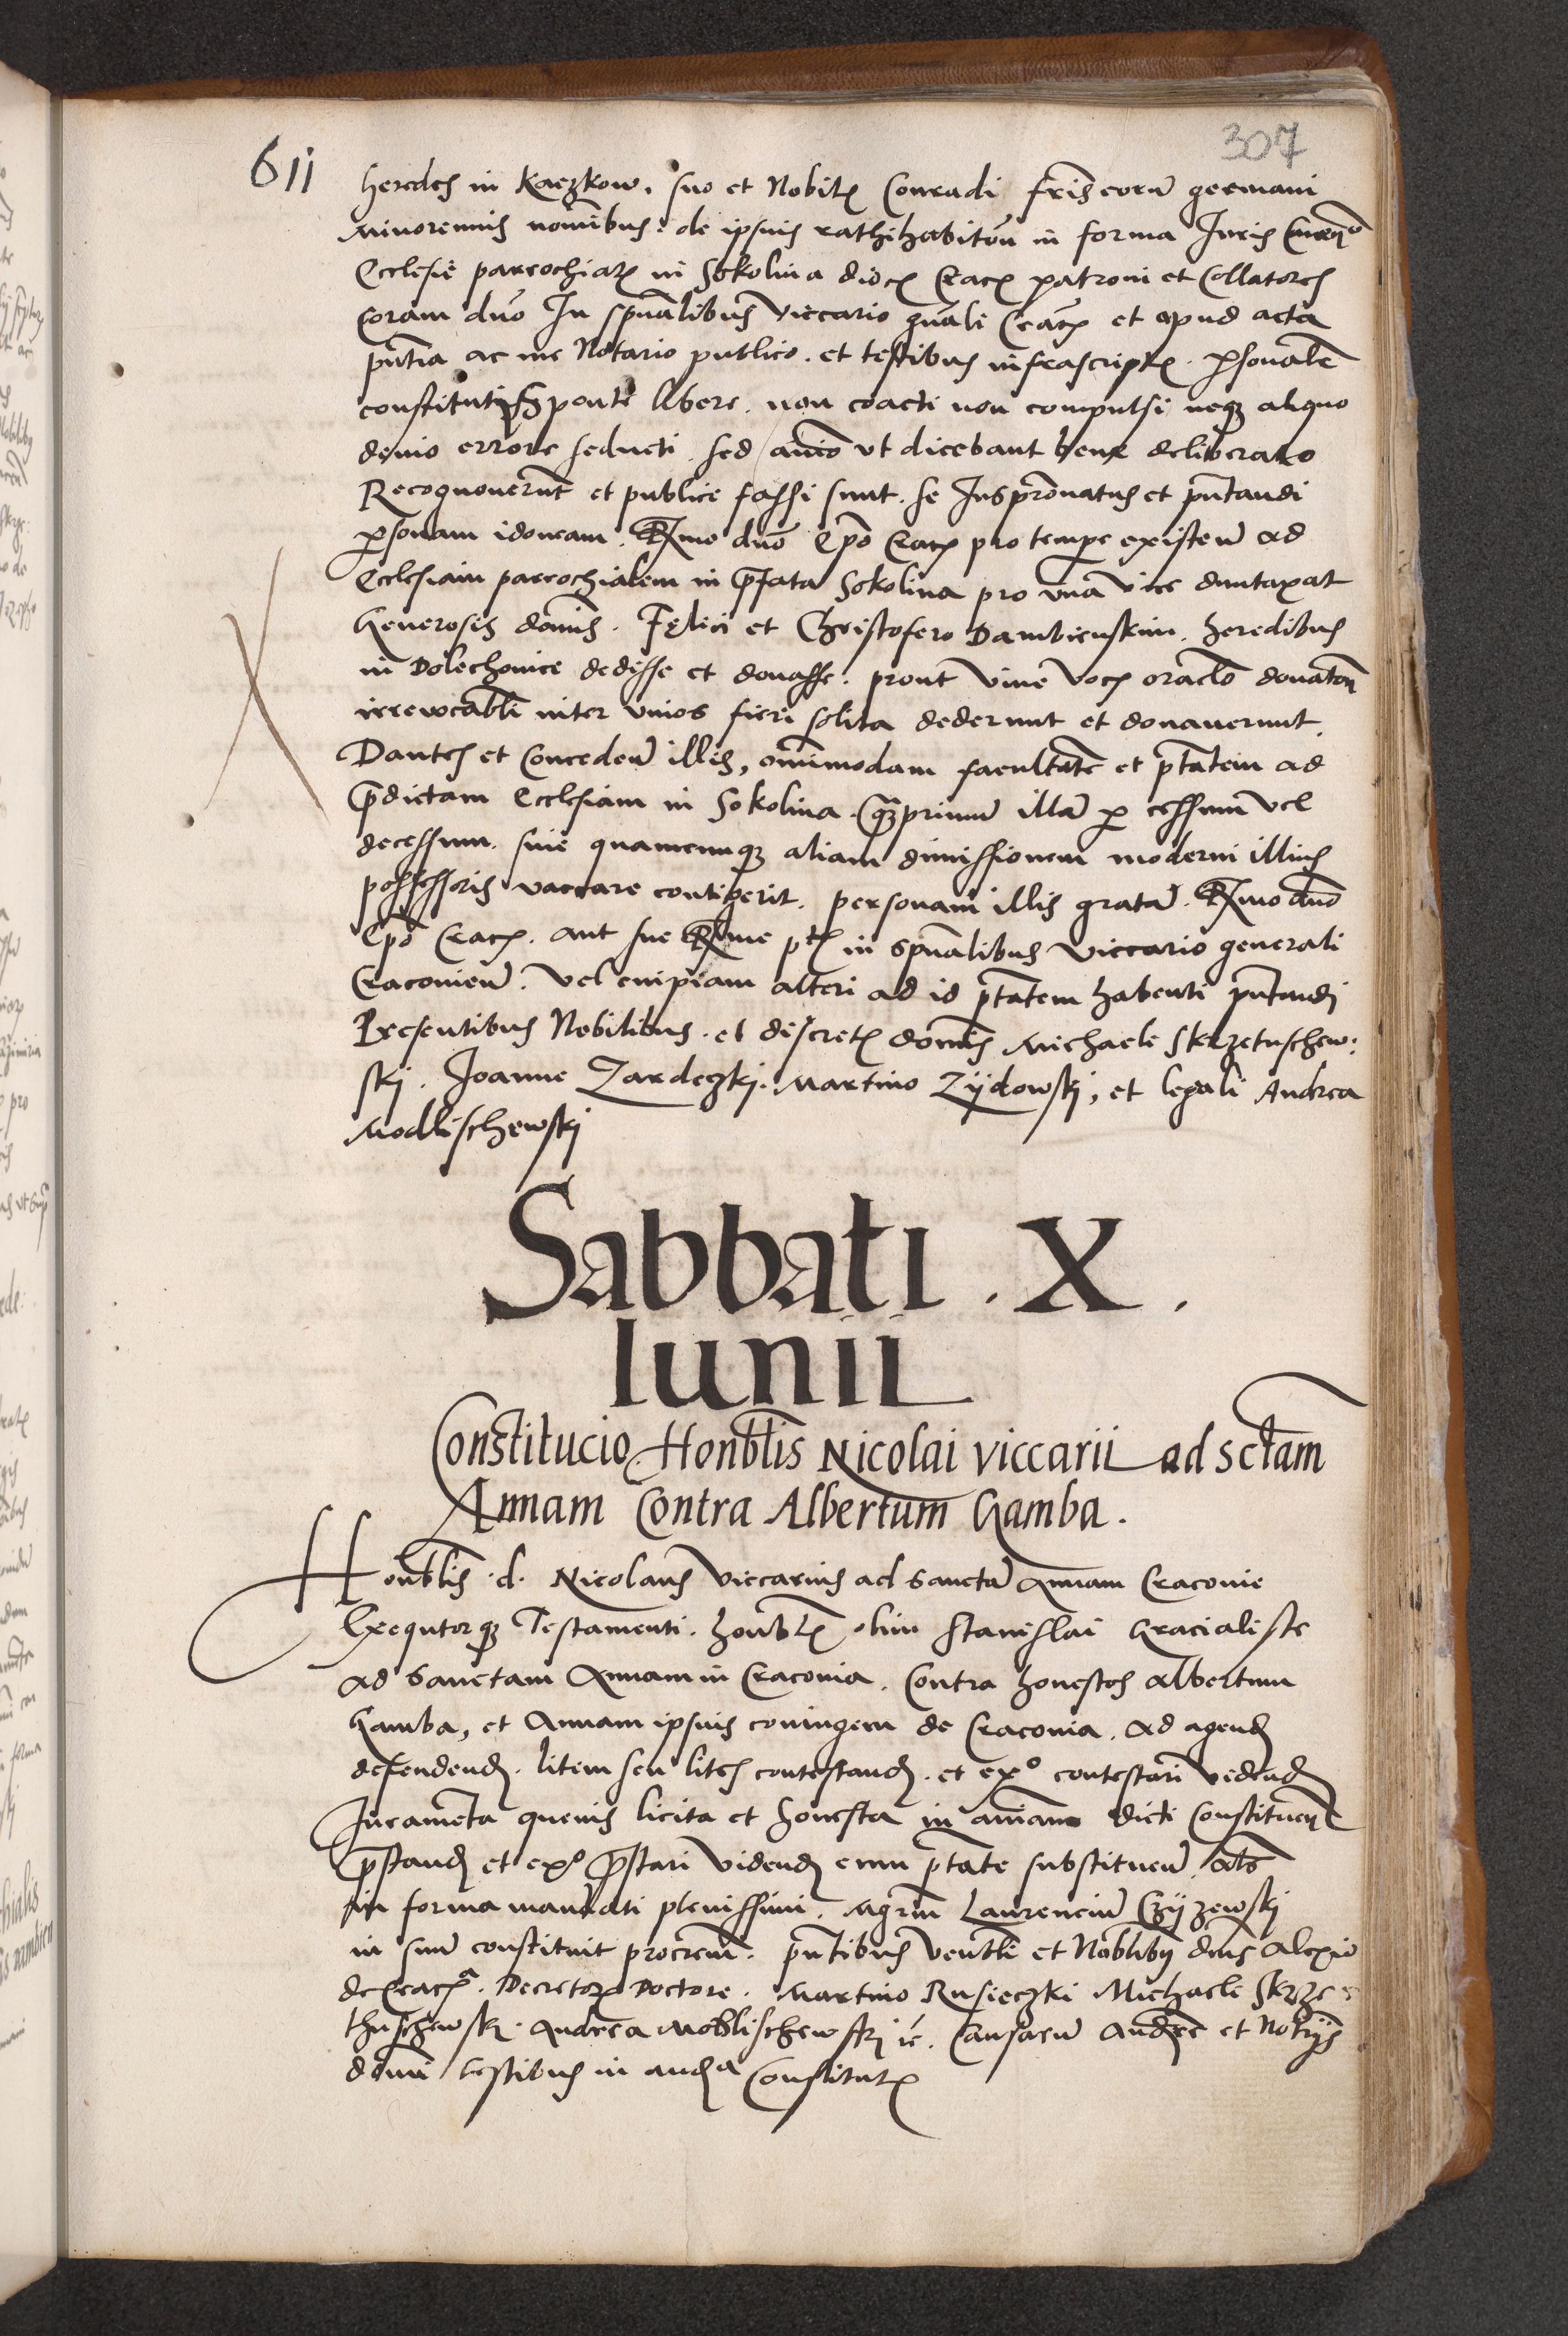 307
611
heredes in Kaczkow. suo et Nobil Conradi fris eorum germani
Minorennis nominibus. de ipsius rathihabitōn in forma Iuris
Ecclesie parrochiał in Sokolina dioc Crac patroni et Collatores
Coram dno In spūalibus Viccario gnali Crac et apud acta
pntia ac me Notario publico. et testibus infrascript. psonalr
constituti sponte libere. non coacti non compulsi neqz aliquo
devio errore seducti. sed aīo vt dicebant bene deliberato
Recognouerunt et publice fassi sunt. se Ius pronatus et pntandi
psonam idoneam. Rmo dno Epo Crac pro tempe existen ad
Ecclesiam parrochialem in prefata Sokolina pro vna vice duntaxat
Generosis domis. Felici et Christofero Dambienskim. heredibus
in Dolechouice dedisse et donasse. prout viue vocis oraclo donatōn
irreuocabli inter viuos fieri solita dederunt et donauerunt.
Dantes et Conceden illis, omnimodam facultate et ptatem ad
predictam Ecclesiam in Sokolina. qzprimum illa p cessum vel
decessum. siue quamcumqz aliam dimissionem moderni illius
possessoris vaccare contigerit. personam illis grata. Rmo dno
Epo Crac. aut sue Rme pt in spūalibus Viccario generali
Cracouien. vel cuipiam alteri ad id ptatem habenti pntandi
Presentibus Nobilibus. et discret domis Michaele Skrzetuschew:
skj. Joanne Zardeczkj. Martino Zijdowskj, et legali Andrea
Modlischewskj
Sabbati . X .
Iunii
Constitucio Honblis Nicolai viccarii ad sctam
Annam Contra Albertum Gamba.
Honblis .d. Nicolaus Viccarius ad Sancta Annam Cracouie
Exequtorqz Testamenti. honbl olim Stanislai Gracialiste
ad Sanctam Annam in Cracouia. Contra honestos Albertum
Gamba, et Annam ipsius coniugem de Cracouia. ad agend
defendend. litem seu lites contestand. et exo contestari vedend
Iuramenta queuis licita et honesta in aniam dicti Constituen
prestand et exo prestari videnд cum ptate substituen. als
in forma mandati plenissimi. Mgrm Laurencium Czijzewskj
in suum constituit procrem. pntibus Venbli et Nobliby dnis Alexio
de Crac. Decretor Doctore. Martino Rusieczki Michaele Skrze
thuschewskj. Andrea Modlischewskj ic. Causarum Andre et Notrijs
domi testibus in auda Constitut